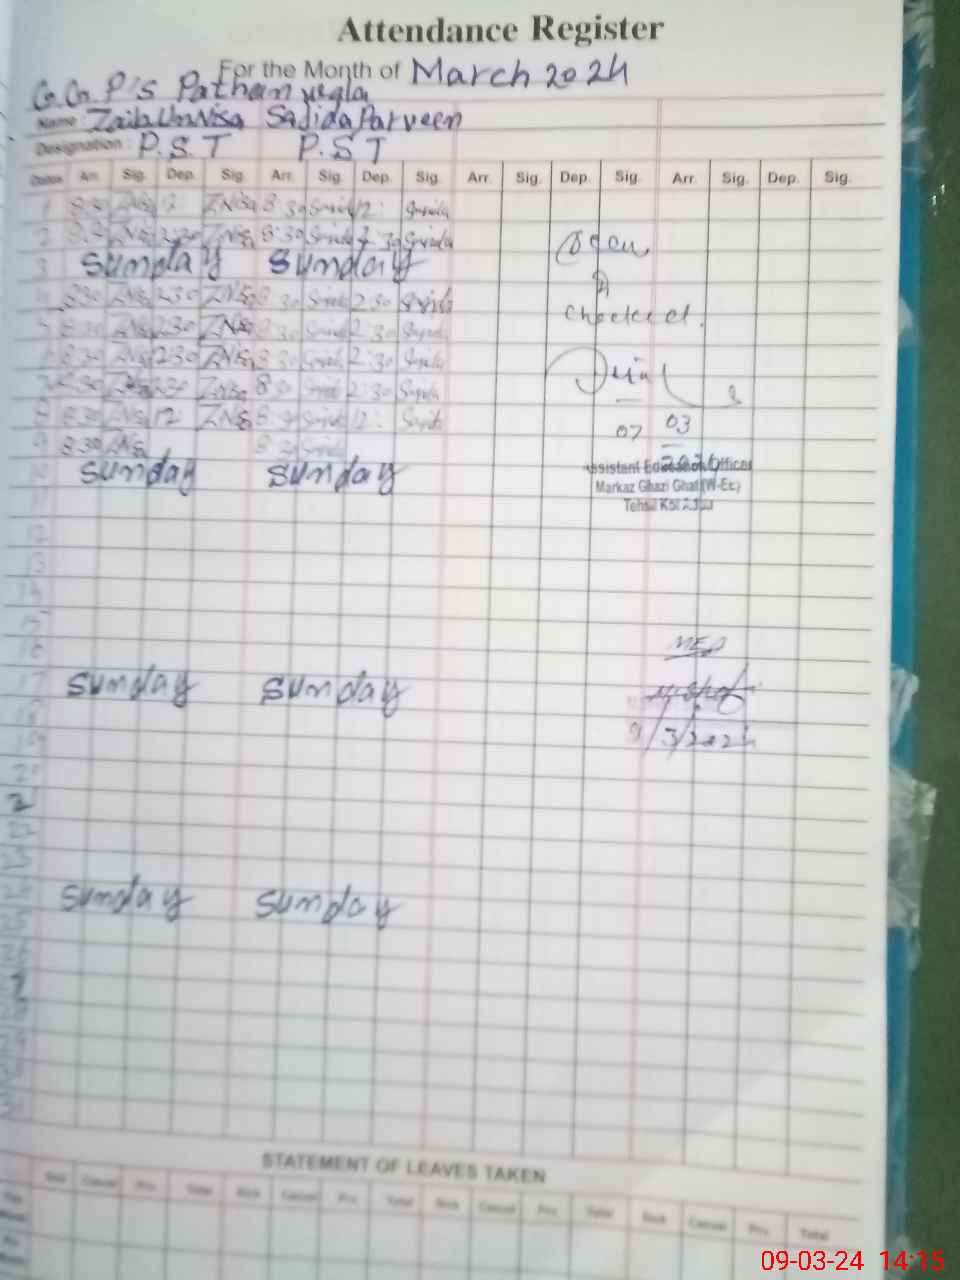 Attendance Register
For the Month of March 2024
G.G.P's Pathan
Name: Zaib Un Nisa Sajida Parveen
Designation: P.S.T P.S.T
Dates Arr. Sig. Dep. Sig. Arr. Sig. Dep. Sig. Arr. Sig. Dep. Sig. Arr. Sig. Dep. Sig.
1 8:30 ZNisa 12: ZNisa 8:30 Sajida 12: Sajida
2 8:30 ZNisa 2:30 ZNisa 8:30 Sajida 2:30 Sajida
3 Sunday Sunday
4 8:30 ZNisa 2:30 ZNisa 8:30 Sajida 2:30 Sajida
5 8:30 ZNisa 2:30 ZNisa 8:30 Sajida 2:30 Sajida
checked.
6 8:30 ZNisa 2:30 ZNisa 8:30 Sajida 2:30 Sajida
7 8:30 ZNisa 2:30 ZNisa 8:30 Sajida 2:30 Sajida
8 8:30 ZNisa 12: ZNisa 8:30 Sajida 12: Sajida
07 03
9 8:30 ZNisa 8:30 Sajida
10 Sunday Sunday
Assistant Education Officer
Markaz Ghazi Ghat (W-Ex)
Tehsil Kot Addu
11
12
13
14
15
16
17 Sunday Sunday
18
19
9/3/2024
20
2
22
23
24 Sunday Sunday
25
STATEMENT OF LEAVES TAKEN
Sick Casual Prv. Total Sick Casual Prv. Total Sick Casual Prv. Total Sick Casual Prv. Total
09-03-24 14:15